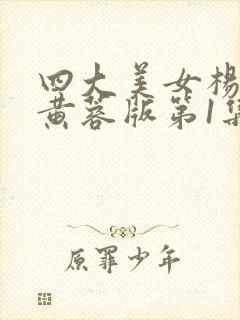 四大美女杨
黄蓉版第1集
原罪少年